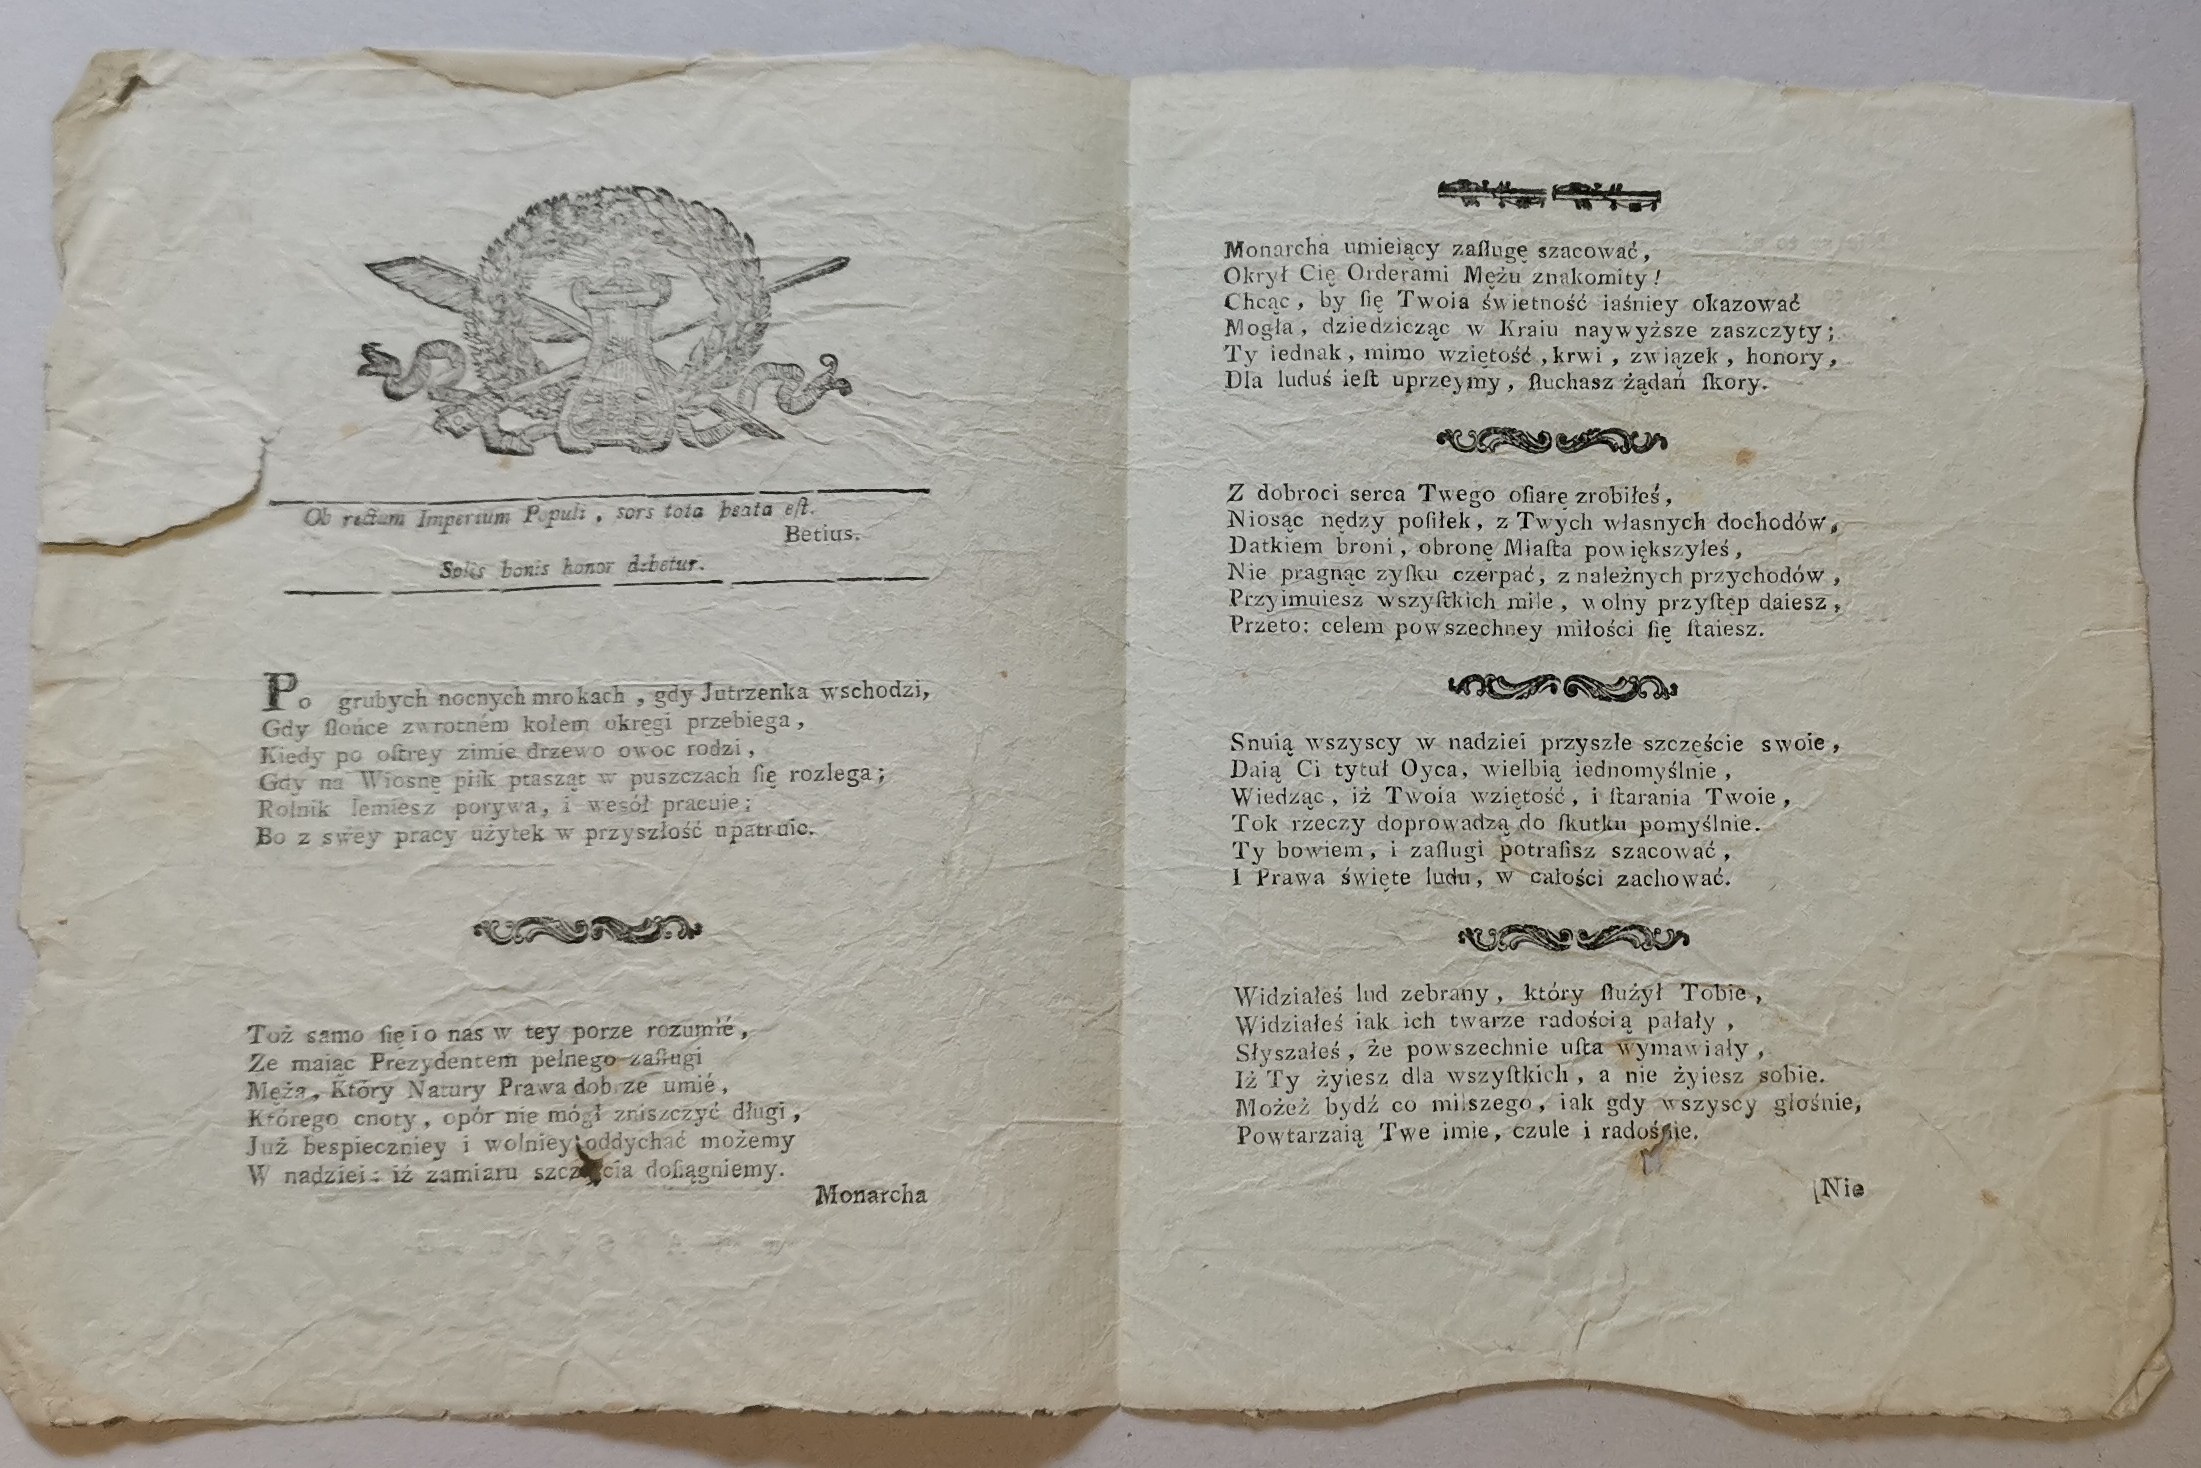 Ob rectum Imperium Populi, sors tota beata eſt.
Betius.
Solis bonis honor debetur.
Po grubych nocnych mrokach, gdy Jutrzenka wschodzi,
Gdy ſłońce zwrotném kołem okręgi przebiega,
Kiedy po oſtrey zimie drzewo owoc rodzi,
Gdy na Wiosnę piſk ptasząt w puszczach ſię rozlega;
Rolnik lemiesz porywa, i wesół pracuie;
Bo z swey pracy użytek w przyszłość upatruie.
Toż samo ſię i o nas w tey porze rozumié,
Ze maiąc Prezydentem pełnego zaſługi
Męża, Który Natury Prawa dobrze umié,
Którego cnoty, opór nie mógł zniszczyć długi,
Już bespieczniey i wolniey oddychać możemy
W nadziei: iź zamiaru szczęcia doſiągniemy.
Monarcha
Monarcha umieiący zaſługę szacować,
Okrył Cię Orderami Mężu znakomity!
Chcąc, by ſię Twoia świetność iaśniey okazować
Mogła, dziedzicząc w Kraiu naywyższe zaszczyty;
Ty iednak, mimo wziętość, krwi, związek, honory,
Dla luduś ieſt uprzeymy, ſłuchasz żądań ſkory.
Z dobroci serca Twego oſiarę zrobiłeś,
Niosąc nędzy poſiłek, z Twych własnych dochodów,
Datkiem broni, obronę Miaſta powiększyłeś,
Nie pragnąc zyſku czerpać, z należnych przychodów,
Przyimuiesz wszyſtkich mile, wolny przyſtęp daiesz,
Przeto: celem powszechney miłości ſię ſtaiesz.
Snuią wszyscy w nadziei przyszłe szczęście swoie,
Daią Ci tytuł Oyca, wielbią iednomyślnie,
Wiedząc, iż Twoia wziętość, i ſtarania Twoie,
Tok rzeczy doprowadzą do ſkutku pomyślnie.
Ty bowiem, i zaſługi potraſisz szacować,
I Prawa święte ludu, w całości zachować.
Widziałeś lud zebrany, który ſłużył Tobie,
Widziałeś iak ich twarze radością pałały,
Słyszałeś, że powszechnie uſta wymawiały,
Iż Ty żyiesz dla wszyſtkich, a nie żyiesz sobie.
Możeż bydź co milszego, iak gdy wszyscy głośnie,
Powtarzaią Twe imie, czule i radośnie.
[Nie